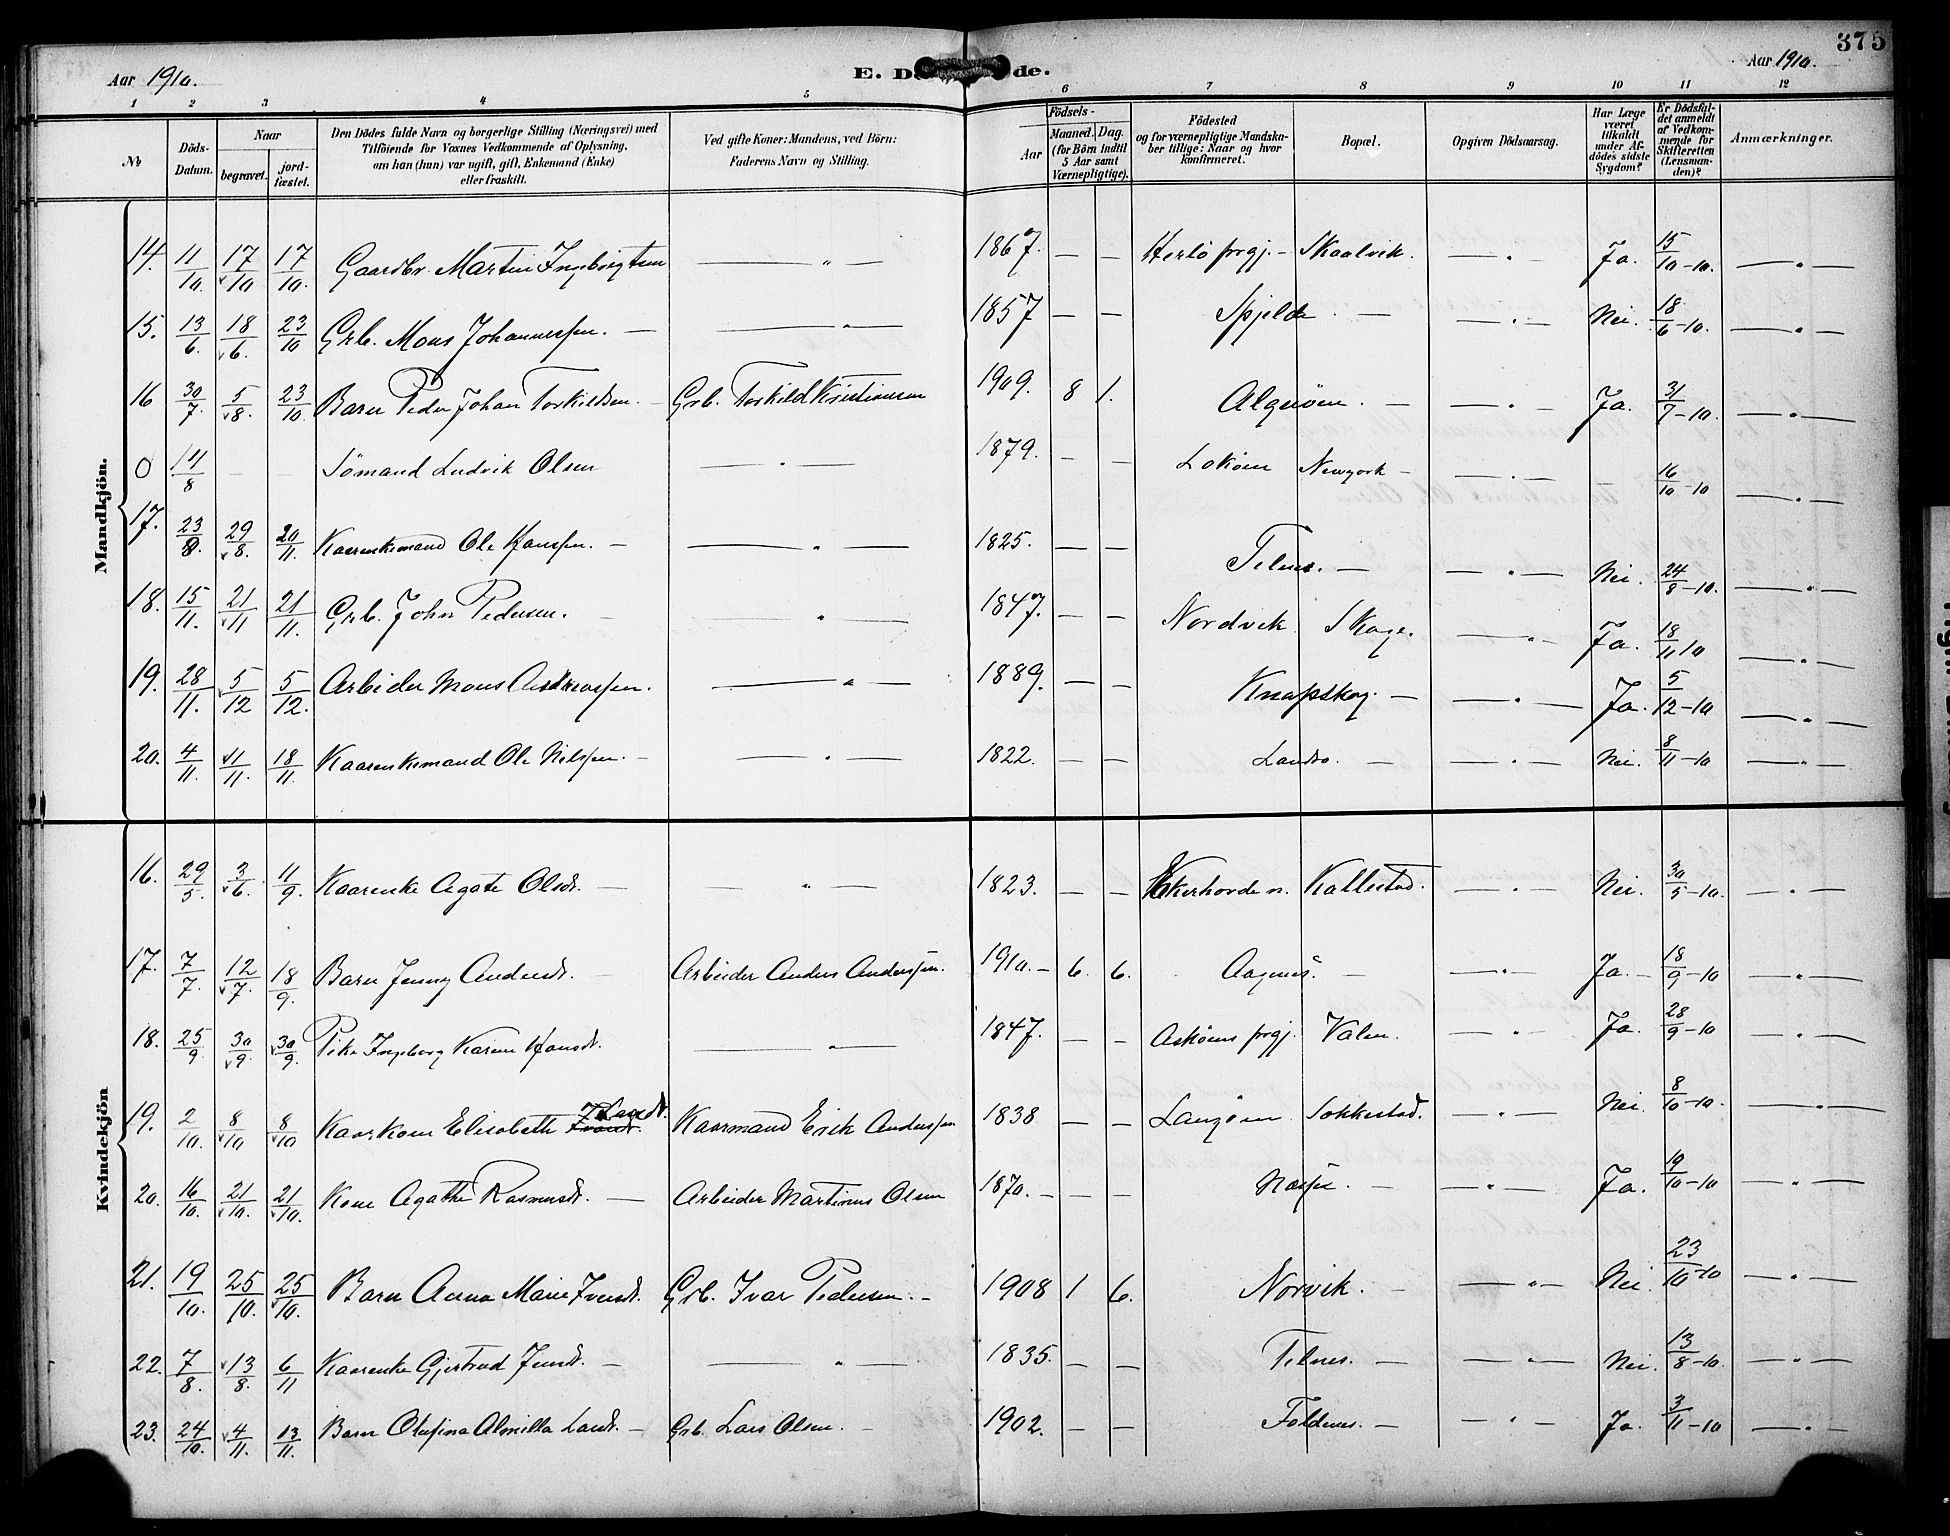 375
Aar 1910.
E. D de.
Aar 1910.
1 2 3 4 5 6 7 8 9 10 11 12
No
Döds-Datum.
Naar
begravet.
jord-fæstet.
Den Dödes fulde Navn og borgerlige Stilling (Næringsvei) med
Tilföiende for Voxnes Vedkommende af Oplysning,
om han (hun) var ugift, gift, Enkemand (Enke)
eller fraskilt.
Ved gifte Koner: Mandens, ved Börn:
Faderens Navn og Stilling.
Aar
Födsels-
Maaned. Dag.
(for Börn indtil
5 Aar samt
Værnepligtige).
Födested
og for værnepligtige Mandska-
ber tillige: Naar og hvor
konfirmeret.
Bopæl.
Opgiven Dödsaarsag.
Har Læge
været
tilkaldt
under Af-
dödes sidste
Sygdom?
Er Dödsfal-
det anmeldt
af Vedkom-
mende for
Skifteretten
(Lensman-
den)?
Anmærkninger.
Mandkjön.
14. 11/10. 17/10 17/10. Gaardbr. Martin Ingebrigtsen — " — 1867. — — Herlö prgj. – Skaalvik. — " — Ja. 15/10-10. — " —
15. 13/6. 18/6. 23/10 Grb. Mons Johannessen. — — " — 1857 — — Spjelde. — — " — Nei. 18/6-10. — " —
16 30/7. 5/8. 23/10. Barn Peder Johan Torkildsen. Grb. Torkild Kristiansen 1909. 8 1. Algeröen. — — " — Ja. 31/7-10. — " —
0 14/8 – – Sömand Ludvik Olsen — " — 1879. — — Loköen Newyork – — " — – 16/10-10 — " —
17. 23/8. 29/8. 20/11. Kaarenkemand Ole Hanssen. — — " — 1825. — — Telnes. — — " — Nei. 24/8-10. — " —
18. 15/11. 21/11 21/11. Grb. John Pedersen. — — " — 1847. — — Nordvik Skoge. — " — Ja. 18/11 10 — " —
19. 28/11. 5/12 5/12. Arbeider Mons Andreassen. — " — 1889. — — Knapskog. — — " — Ja. 5/12-10 — " —
20. 4/11. 11/11. 18/11. Kaarenkemand Ole Nilssen. — — " — 1822. — — Landro. — — " — Nei. 8/11-10 — " —
Kvindekjön
16. 29/5. 3/6. 11/9. Kaarenke Agate Olsdt. — — " — 1823. — — Ekerhovde n. Kallestad. — " — Nei. 30/5-10. — " —
17. 7/7. 12/7. 18/9. Barn Jenny Andersdt. — Arbeider Anders Anderssen. 1910. – 6. 6. Aagnes. — — " — Ja. – 18/9-10 — " —
18. 25/9. 30/9. 30/9. Pike Ingeborg Karine Hansdt. — " — 1847. — — Asköens prgj. Valen. — " — Ja. 28/9-10 — " —
19. 2/10. 8/10 8/10 Kaarkone Elisabeth Kaarmand Erik Anderssen 1838 — — Langöen Sokkestad. — " — Nei. 8/10-10. — " —
20. 16/10. 21/10. 21/10. Kone Agathe Rasmusdt. — Arbeider Martinus Olsen 1870. – — — Næsse. — — " — Ja. 19/10-10 — " —
21. 19/10. 25/10. 25/10. Barn Anna Marie Iversdt. Grb. Ivar Pedersen. – 1908 1 6. Norvik. – — " — Nei. 23/10-10 — " —
22. 7/8. 13/8. 6/11 Kaarenke Gjertrud Jensdt. — — " — 1835. — — Telnes. — — " — Nei. 13/8-10. — " —
23. 24/10. 4/11. 13/11. Barn Olufina Almilla Larsdt. – Grb. Lars Olsen. — 1902. — — Foldnes. — — " — Ja. 3/11-10 — " —